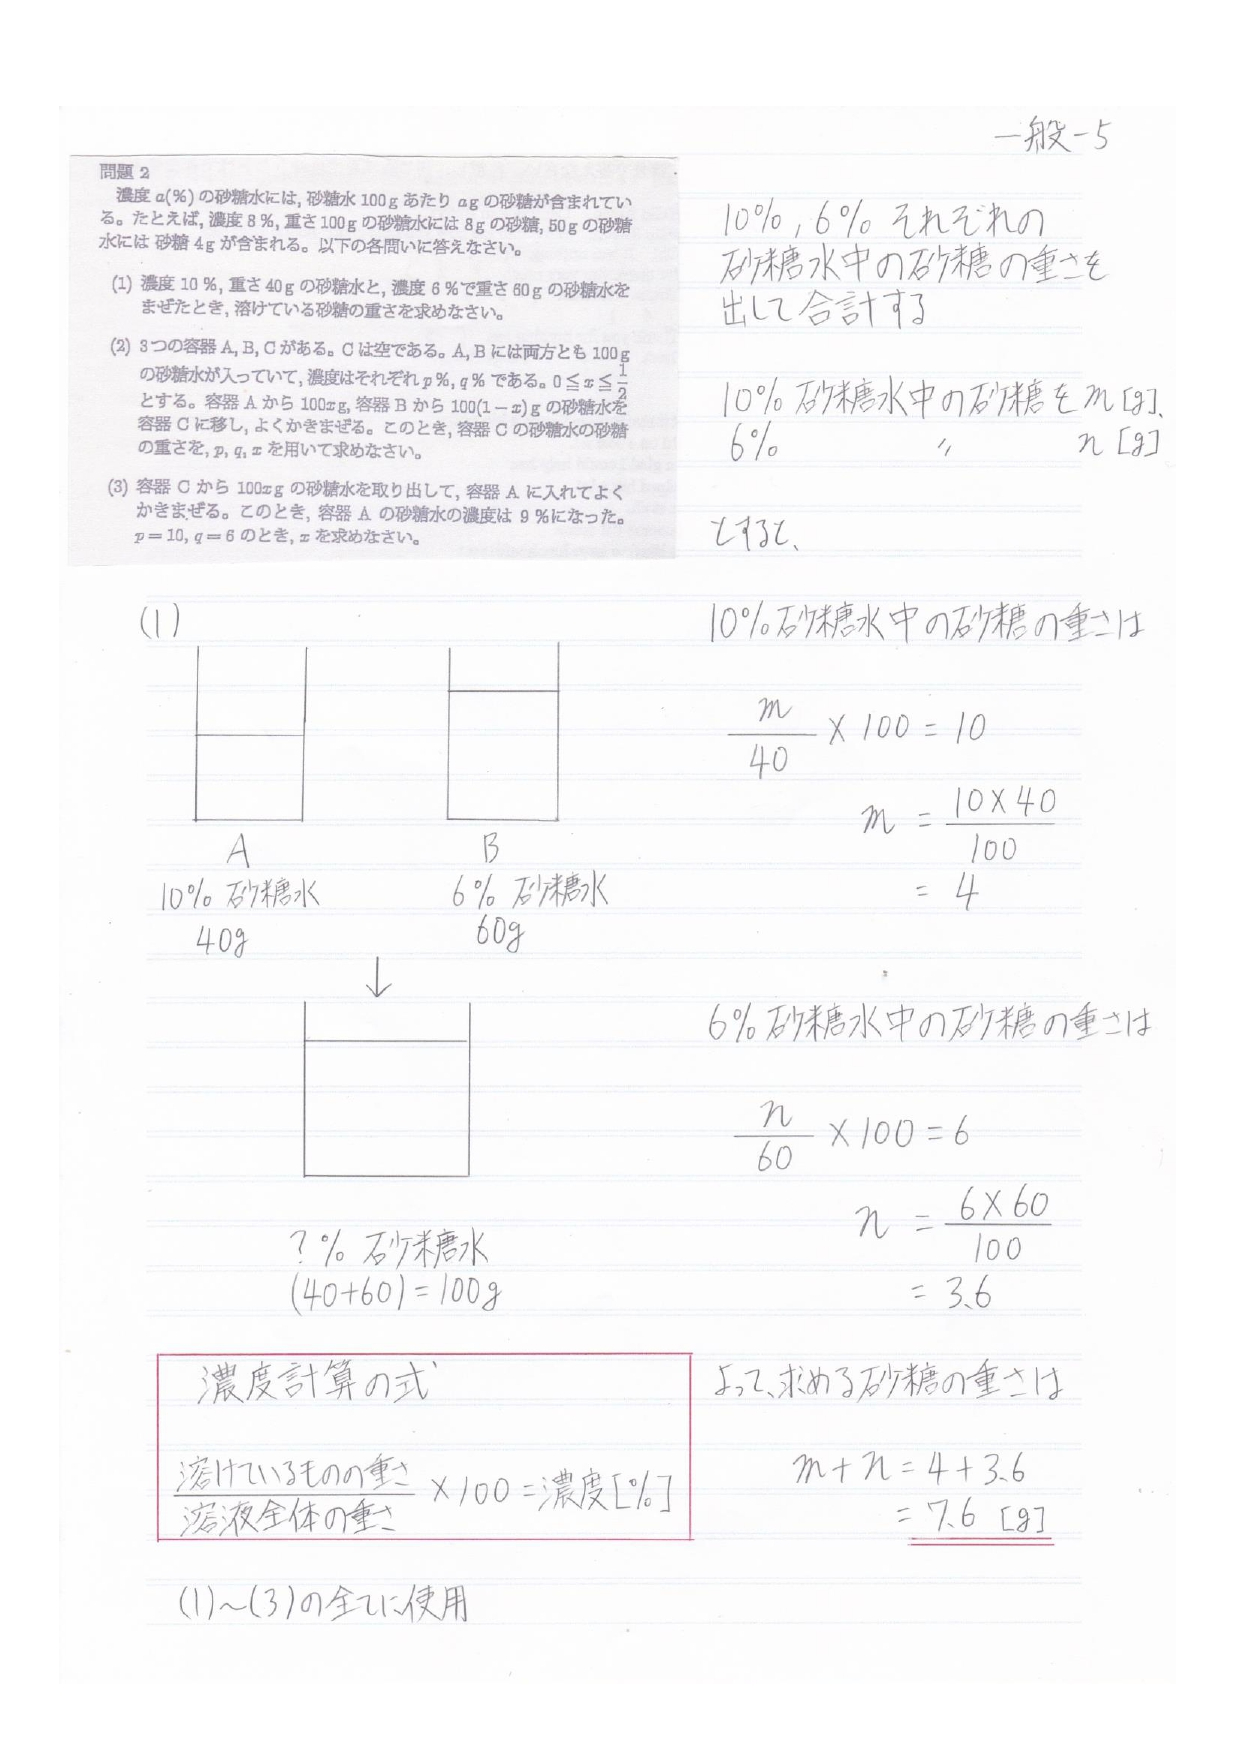 一般-5
問題 2
濃度 a(%) の砂糖水には, 砂糖水 100g あたり ag の砂糖が含まれてい
る。たとえば, 濃度 8 %, 重さ 100g の砂糖水には 8g の砂糖, 50g の砂糖
水には 砂糖 4g が含まれる。以下の各問いに答えなさい。
(1) 濃度 10 %, 重さ 40g の砂糖水と, 濃度 6 %で重さ 60g の砂糖水を
まぜたとき, 溶けている砂糖の重さを求めなさい。
(2) 3つの容器 A, B, C がある。C は空である。A, B には両方とも 100g
の砂糖水が入っていて, 濃度はそれぞれ p%, q% である。0≦x≦1/2
とする。容器 A から 100xg, 容器 B から 100(1−x)g の砂糖水を
容器 C に移し, よくかきまぜる。このとき, 容器 C の砂糖水の砂糖
の重さを, p, q, x を用いて求めなさい。
(3) 容器 C から 100xg の砂糖水を取り出して, 容器 A に入れてよく
かきまぜる。このとき, 容器 A の砂糖水の濃度は 9 %になった。
p=10, q=6 のとき, x を求めなさい。
(1)
A
10% 砂糖水
40g
B
6% 砂糖水
60g
↓
?% 砂糖水
(40+60)=100g
濃度計算の式
溶けているものの重さ/溶液全体の重さ ×100=濃度[%]
(1)~(3)の全てに使用
10%,6% それぞれの
砂糖水中の砂糖の重さを
出して合計する
10% 砂糖水中の砂糖を m[g]、
6% 〃 n[g]
とすると、
10%砂糖水中の砂糖の重さは
m/40 ×100=10
m = 10×40/100
= 4
6%砂糖水中の砂糖の重さは
n/60 ×100=6
n = 6×60/100
= 3.6
よって、求める砂糖の重さは
m+n=4+3.6
= 7.6 [g]